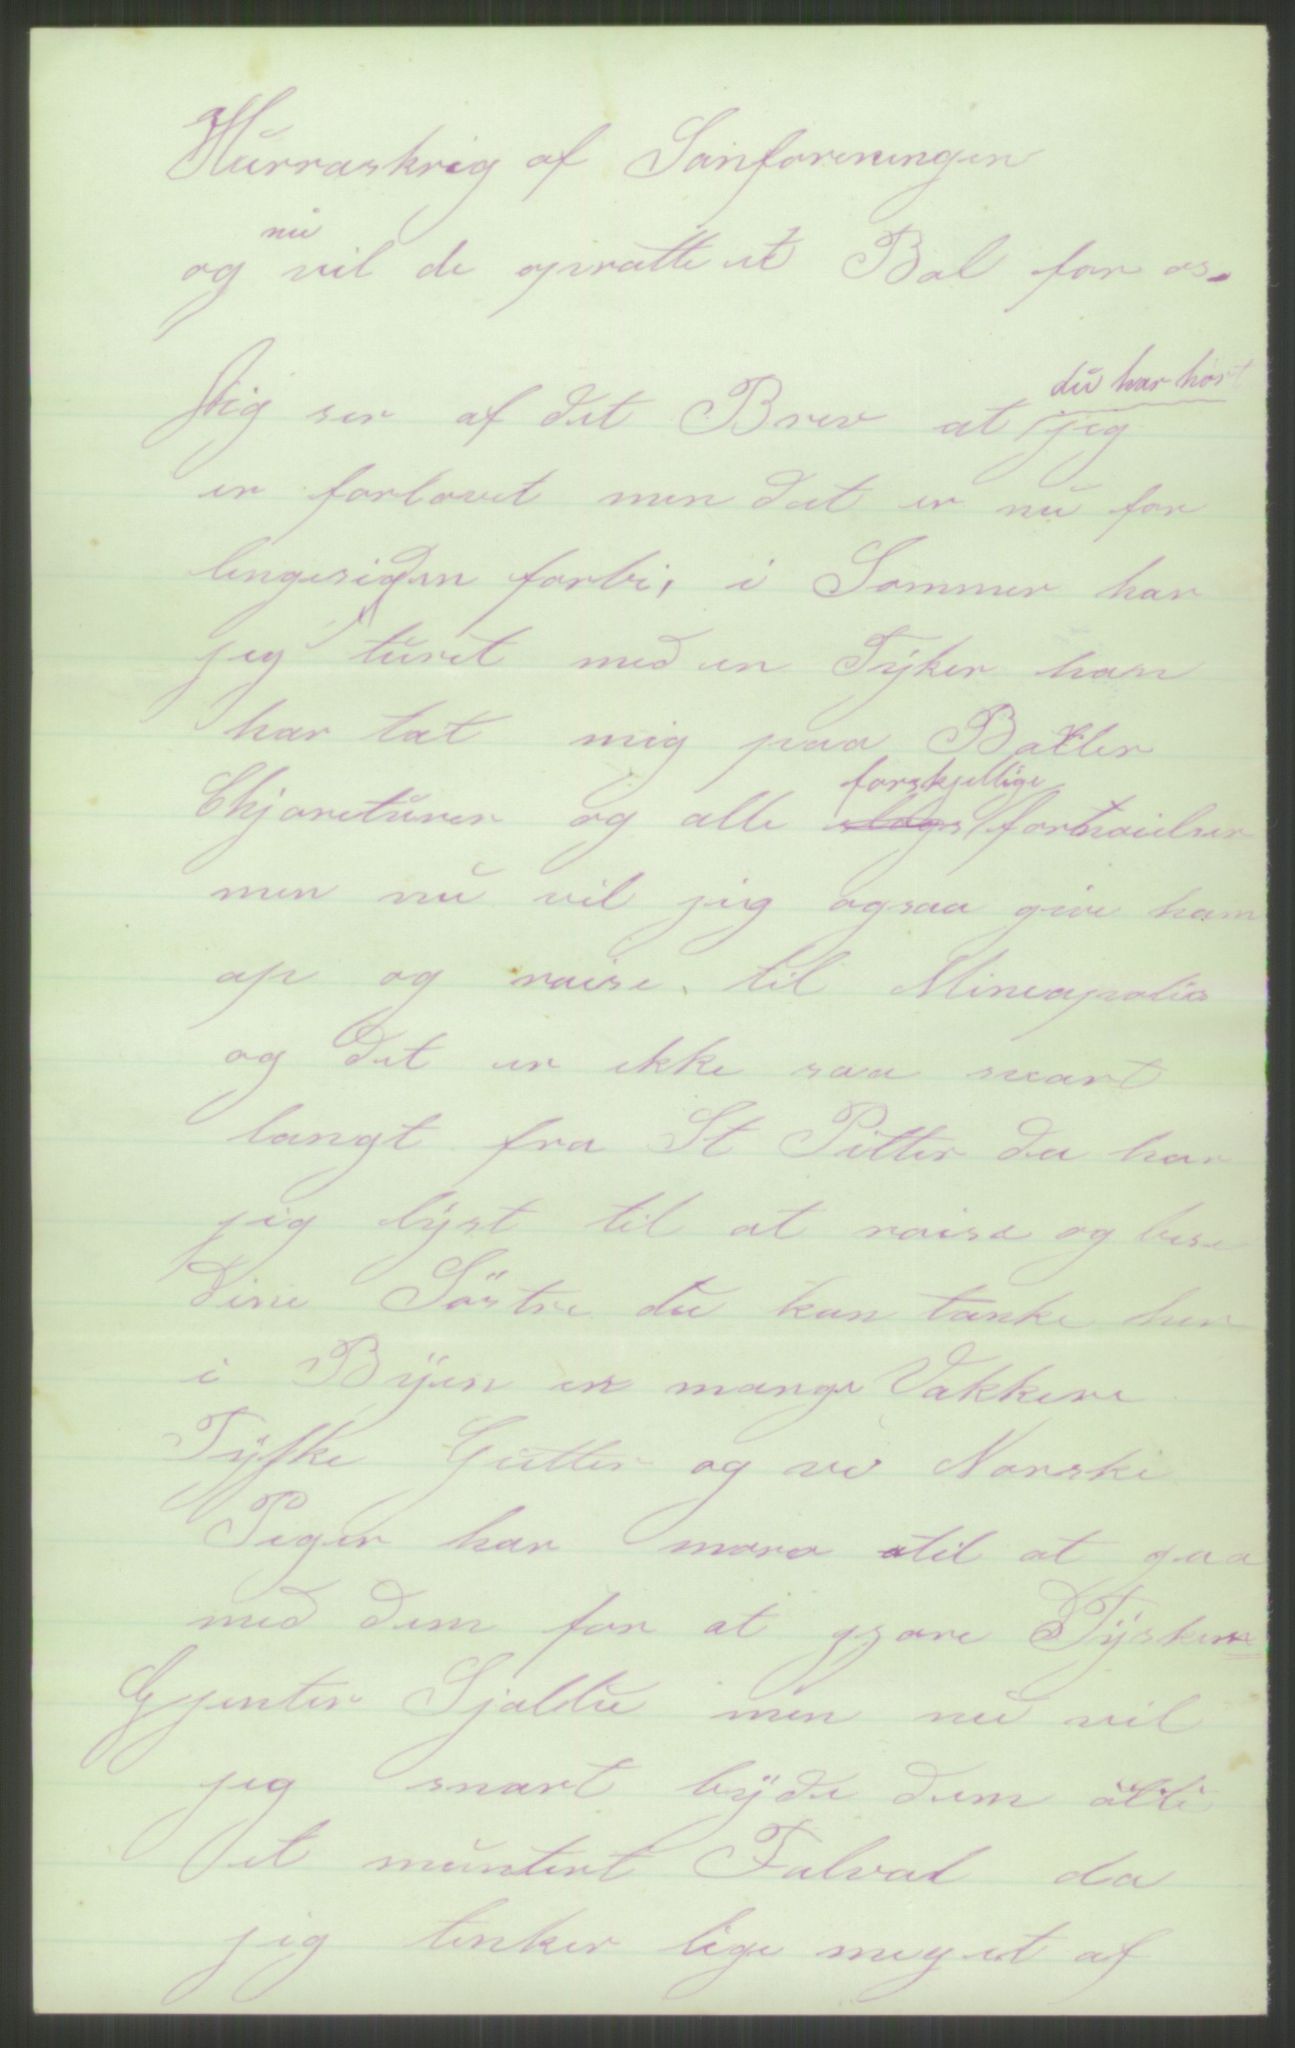 Hurraskrig af Sanforeningen
og nu vil de oprætte et Bal for os.
Jeg ser af det Brev at du har hørt jeg
er forlovet men det er nu for
lengesiden forbi, i Sommer har
jeg turet med en Tyker han
har tat mig paa Baller
Chjøreturer og alle slags forskjellige fornøielser
men nu vil jeg ogsaa give ham
op og reise til Mineapolis
og det er ikke saa svært
langt fra St Pitter da har
jeg lyst til at reise og bese
dine Søstre du kan tænke her
i Byen er mange Vakkere
Tyske Gutter og vi Norske
Piger har moro til at gaa
med dem for at gjøre Tysker
Gjenter Sjaldu men nu vil
jeg snart byde dem alle
et muntert Falval da
jeg tenker lige meget af